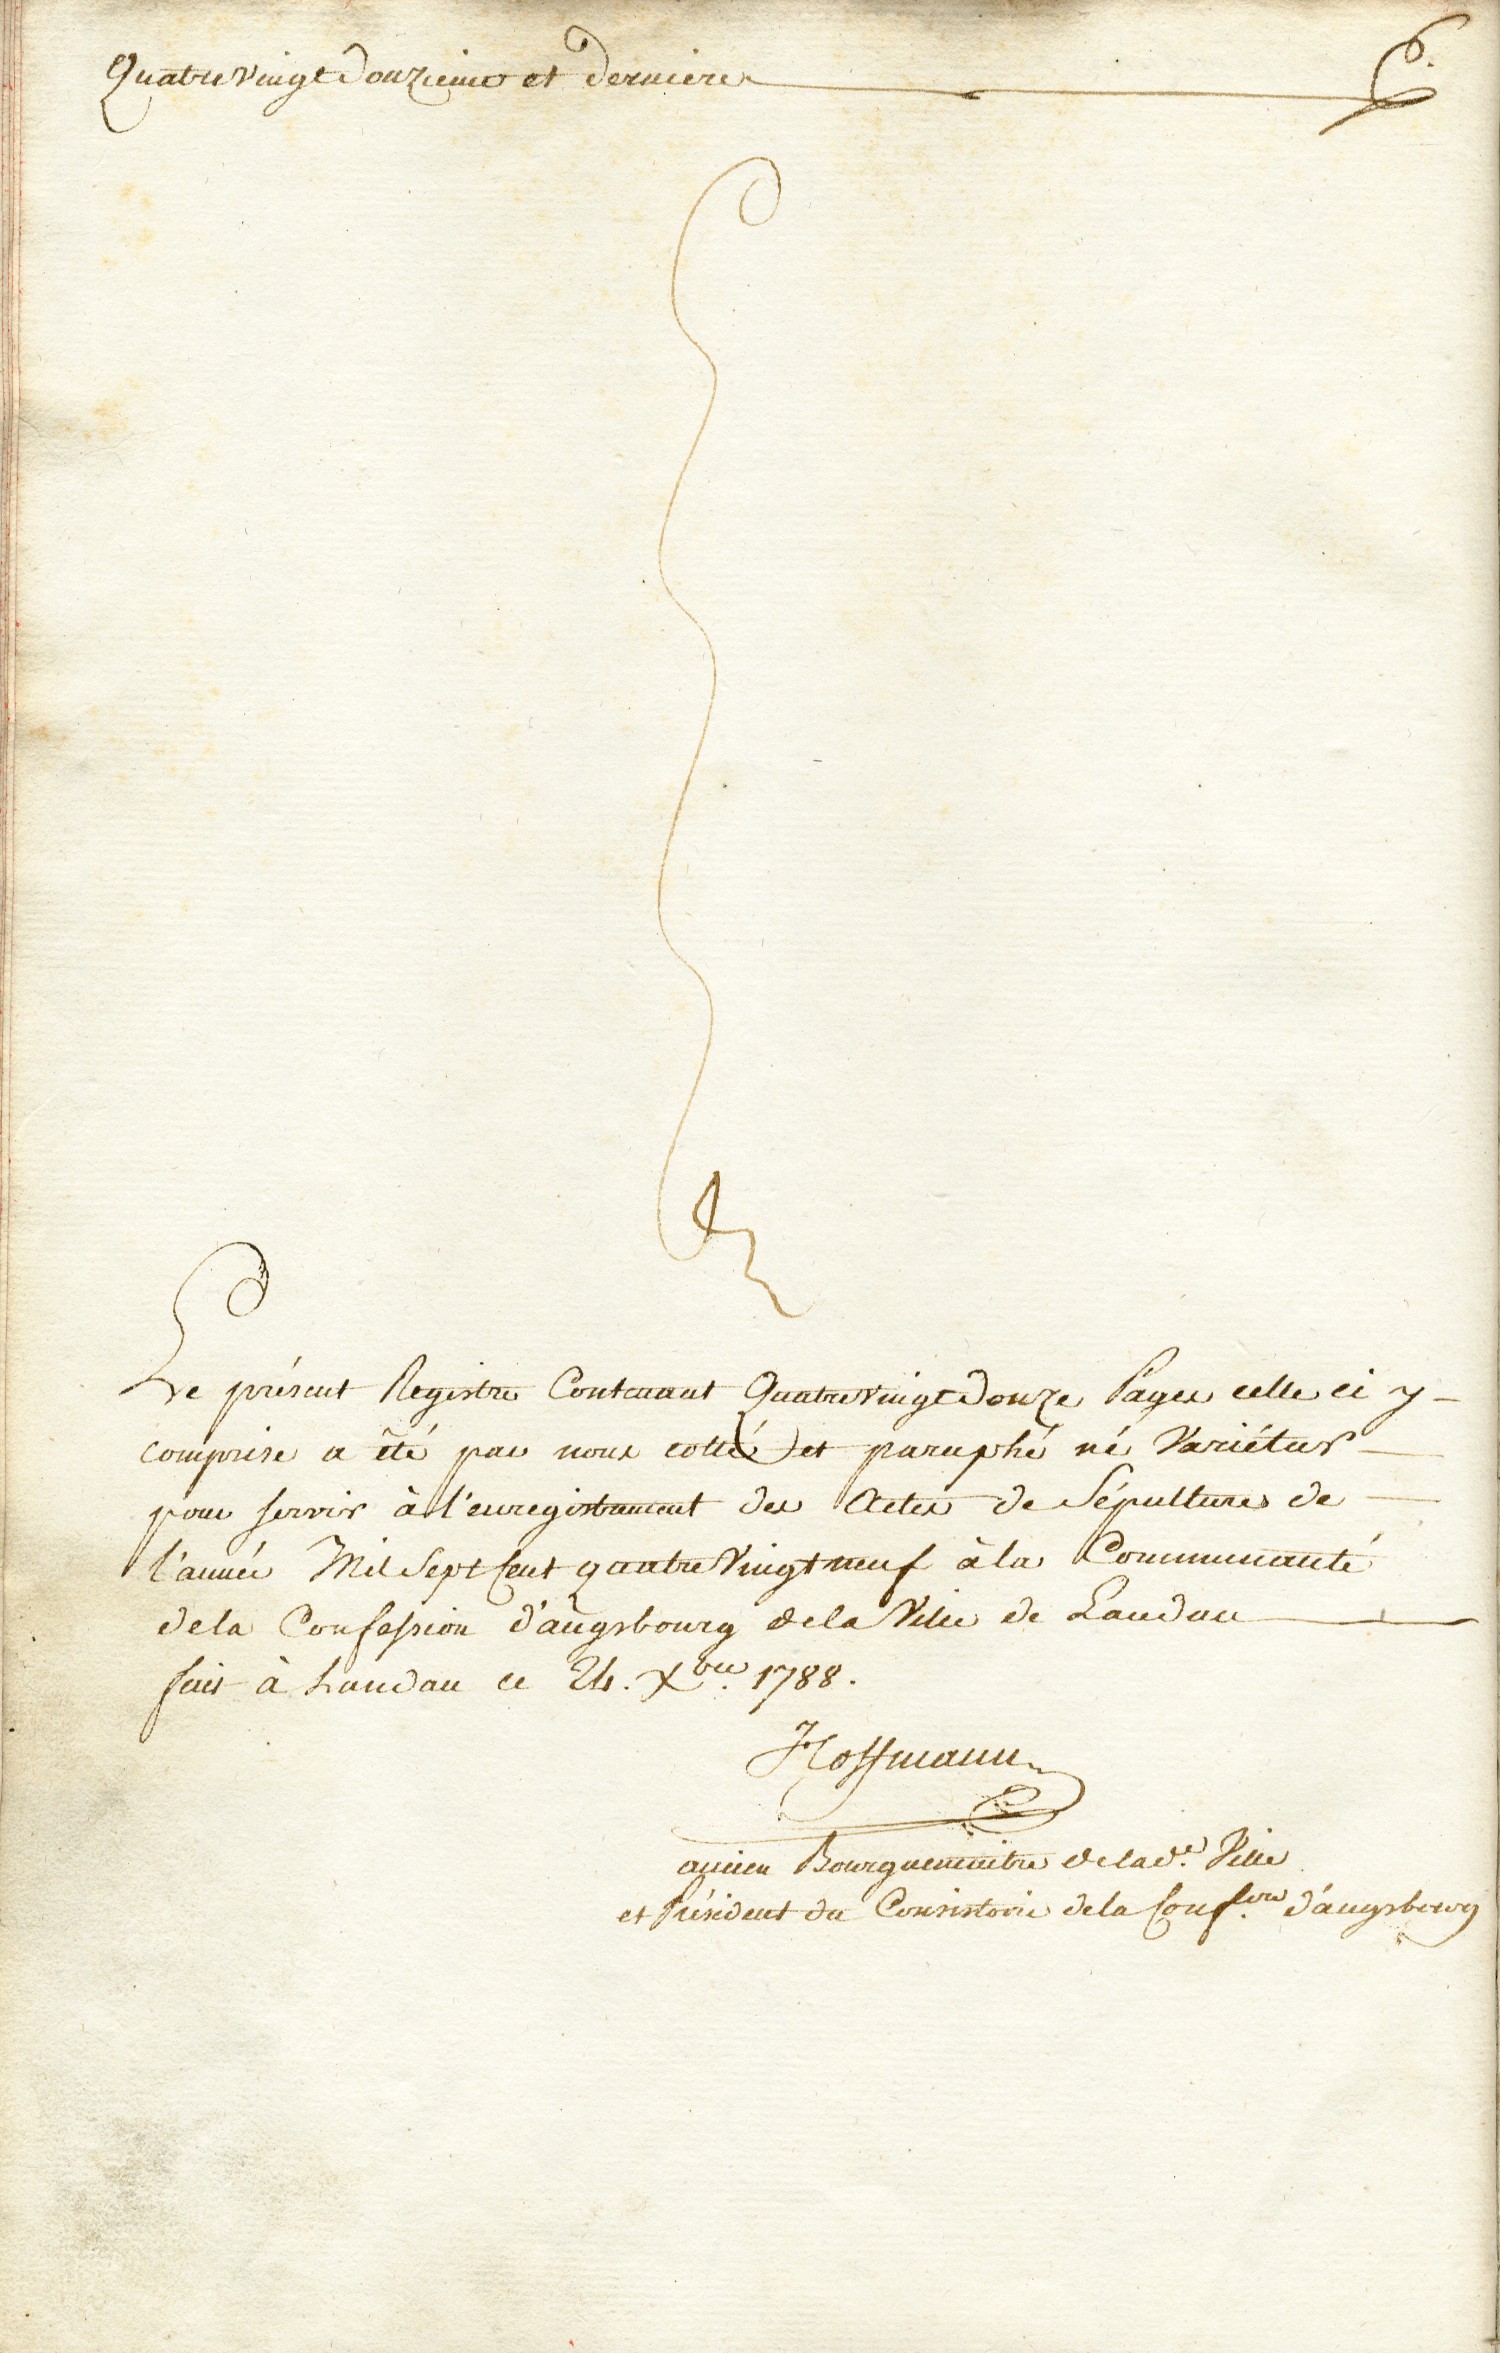 Quatre Vingt Douzieme et Derniere
Le présent Registre Contenant Quatre Vingt Douze Pages celle ci y
comprise a été par nous cotté et paraphé né Variétur
pour servir à l'enregistrement des Actes de Sépultures de
l'année Mil Sept Cent quatre Vingt neuf à la Communauté
de la Confession d'augsbourg de la Ville de Landau
fait à Landau ce 24. Xbre. 1788.
Hoffmann
ancien Bourguemaitre de lad.e Ville
et Président du Consistoire de la Conf.on d'augsbourg